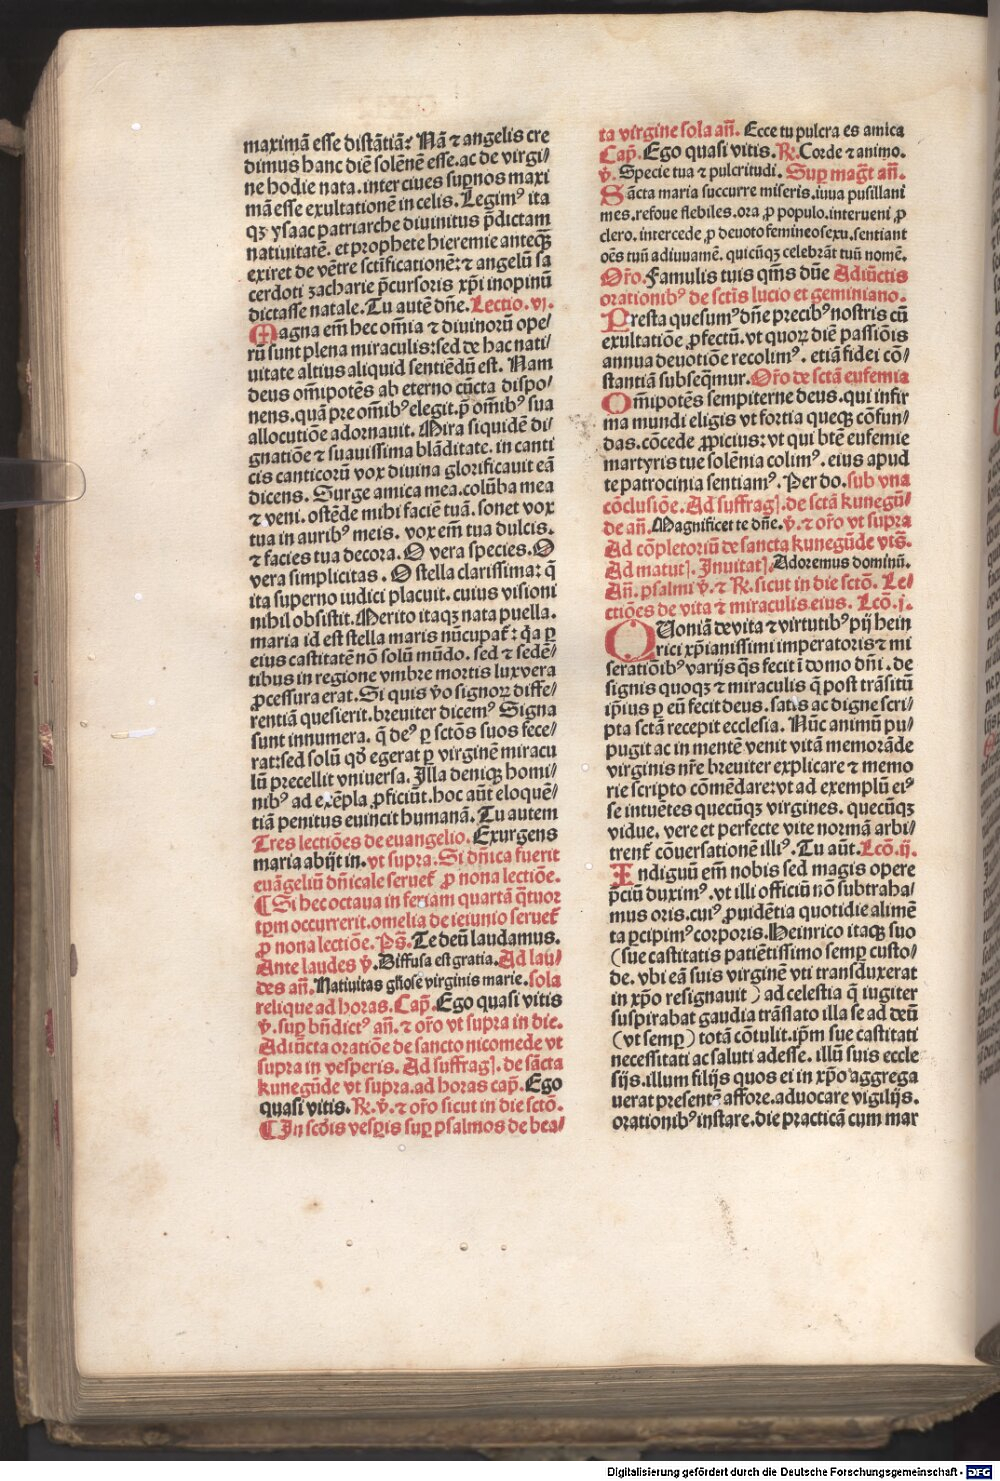 maximā esse distātiā? Nā ⁊ angelis cre
dimus hanc diē solēnē esse. ac de virgi/
ne hodie nata. inter ciues suꝑnos maxi
mā esse exultationē in celis. Legimꝰ ita
qꝫ ysaac patriarche diuinitus p̄dictam
natiuitatē. et prophete hieremie anteqꝫ̄
exiret de vētre sctīficationē: ⁊ angelū sa
cerdoti zacharie p̄cursoris xp̄i inopinū
dictasse natale. Tu autē dn̄e. Lectio. vi.
Magna em̄ hec om̄ia ⁊ diuinorū ope/
rū sunt plena miraculis: sed de hac nati/
uitate altius aliquid sentiēdū est. Nam
deus om̄ipotēs ab eterno cūcta dispo/
nens. quā pre om̄ibꝰ elegit. p̄ om̄ibꝰ sua
allocutiōe adornauit. Mira siquidē di/
gnatiōe ⁊ suauissima blāditate. in canti
cis canticorū vox diuina glorificauit eā
dicens. Surge amica mea. colūba mea
⁊ veni. ostēde mihi faciē tuā. sonet vox
tua in auribꝰ meis. vox em̄ tua dulcis.
⁊ facies tua decora. O vera species. O
vera simplicitas. O stella clarissima: q̄
ita superno iudici placuit. cuius visioni
nihil obsistit. Merito itaqꝫ nata puella.
maria id est stella maris nūcupat᷑: q̄a ꝑ
eius castitatē nō solū mūdo. sed ⁊ sedē/
tibus in regione vmbre mortis lux vera
ꝓcessura erat. Si quis v̄o signoꝝ diffe/
rentiā quesierit. breuiter dicemꝰ Signa
sunt innumera. q̄ deꝰ ꝑ sctōs suos fece/
rat: sed solū qd̄ egerat ꝑ virginē miracu
lū precellit vniuersa. Illa deniqꝫ homi/
nibꝰ ad exēpla ꝓficiūt. hoc aūt eloquē/
tiā penitus euincit humanā. Tu autem
Tres lectiōes de euangelio. Exurgens
maria abijt in. vt supra. Si dn̄ica fuerit
euāgeliū dn̄icale seruet᷑ ꝓ nona lectiōe.
¶ Si hec octaua in feriam quartā q̄tuor
tꝑm occurrerit. omelia de ieiunio seruet᷑
ꝓ nona lectiōe. Ps̄. Te deū laudamus.
Ante laudes v̄. Diffusa est gratia. Ad lau/
des an̄. Natiuitas gl̄iose virginis marie. sola
relique ad horas. Cap̄. Ego quasi vitis
v̄. suꝑ bn̄dictꝰ an̄. ⁊ or̄o vt supra in die.
Adiūcta oratiōe de sancto nicomede vt
supra in vesperis. Ad suffragꝭ. de sācta
kunegūde vt supra. ad horas cap̄. Ego
quasi vitis. ℞. v̄. ⁊ or̄o sicut in die sctō.
¶ In scd̄is vesꝑis suꝑ psalmos de bea/
ta virgine sola an̄. Ecce tu pulcra es amica
Cap̄. Ego quasi vitis. ℞. Corde ⁊ animo.
v̄. Specie tua ⁊ pulcritudi. Suꝑ magt̄ an̄.
Sācta maria succurre miseris. iuua pusillani
mes. refoue flebiles. ora ꝓ populo. interueni ꝓ
clero. intercede ꝓ deuoto femineo sexu. sentiant
oēs tuū adiuuamē. quicūqꝫ celebrāt tuū nomē.
Or̄o. Famulis tuis qm̄s dn̄e Adiūctis
orationibꝰ de sctīs lucio et geminiano.
Presta quesumꝰ dn̄e precibꝰ nostris cū
exultatiōe ꝓfectū. vt quoꝝ diē passiōis
annua deuotiōe recolimꝰ. etiā fidei cō/
stantiā subseq̄mur. Or̄o de sctā eufemia
Om̄ipotēs sempiterne deus. qui infir
ma mundi eligis vt fortia queqꝫ cōfun/
das. cōcede ꝓpicius: vt qui btē eufemie
martyris tue solēnia colimꝰ. eius apud
te patrocinia sentiamꝰ. Per do. sub vna
cōclusiōe. Ad suffragꝭ. de sctā kunegū/
de an̄. Magnificet te dn̄e. v̄. ⁊ or̄o vt supra
Ad cōpletoriū de sancta kunegūde vts̄.
Ad matutꝭ. Inuitatꝭ. Adoremus dominū.
An̄. psalmi v̄. ⁊ ℞. sicut in die sctō. Le/
ctiōes de vita ⁊ miraculis eius. Lcō. j.
QUoniā de vita ⁊ virtutibꝰ pij hein
rici xp̄ianissimi imperatoris ⁊ mi
serationibꝰ varijs q̄s fecit ī domo dn̄i. de
signis quoqꝫ ⁊ miraculis q̄ post trāsitū
ip̄ius ꝑ eū fecit deus. satis ac digne scri/
pta sctā recepit ecclesia. Nūc animū pu/
pugit ac in mentē venit vitā memorāde
virginis nr̄e breuiter explicare ⁊ memo
rie scripto cōmēdare: vt ad exemplū eiꝰ
se intuētes quecūqꝫ virgines. quecūqꝫ
vidue. vere et perfecte vite normā arbi/
trent᷑ cōuersationē illiꝰ. Tu aūt. Lcō. ij.
Indiguū em̄ nobis sed magis opere
p̄ciū duximꝰ. vt illi officiū nō subtraha/
mus oris. cuiꝰ ꝓuidētia quotidie alimē
ta ꝑcipimꝰ corporis. Heinrico itaqꝫ suo
(sue castitatis patiētissimo semꝑ custo/
de. vbi eā suis virginē vti transduxerat
in xp̄o resignauit) ad celestia q̄ iugiter
suspirabat gaudia trāslato illa se ad deū
(vt semꝑ) totā cōtulit. ip̄m sue castitati
necessitati ac saluti adesse. illū suis eccle
sijs. illum filijs quos ei in xp̄o aggrega
uerat presentꝭ affore. aduocare vigilijs.
orationibꝰ instare. die practicā cum mar
Digitalisierung gefördert durch die Deutsche Forschungsgemeinschaft - DFG